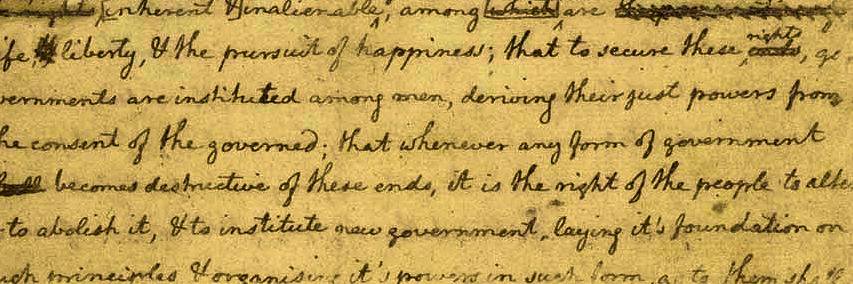 inherent & inalienable, among which are
life, liberty, & the pursuit of happiness; that to secure these rights ends, go
vernments are instituted among men, deriving their just powers from
he consent of the governed; that whenever any form of government
becomes destructive of these ends, it is the right of the people to alter
to abolish it, & to institute new government, laying it's foundation on
such principles & organising it's powers in such form, as to them shall